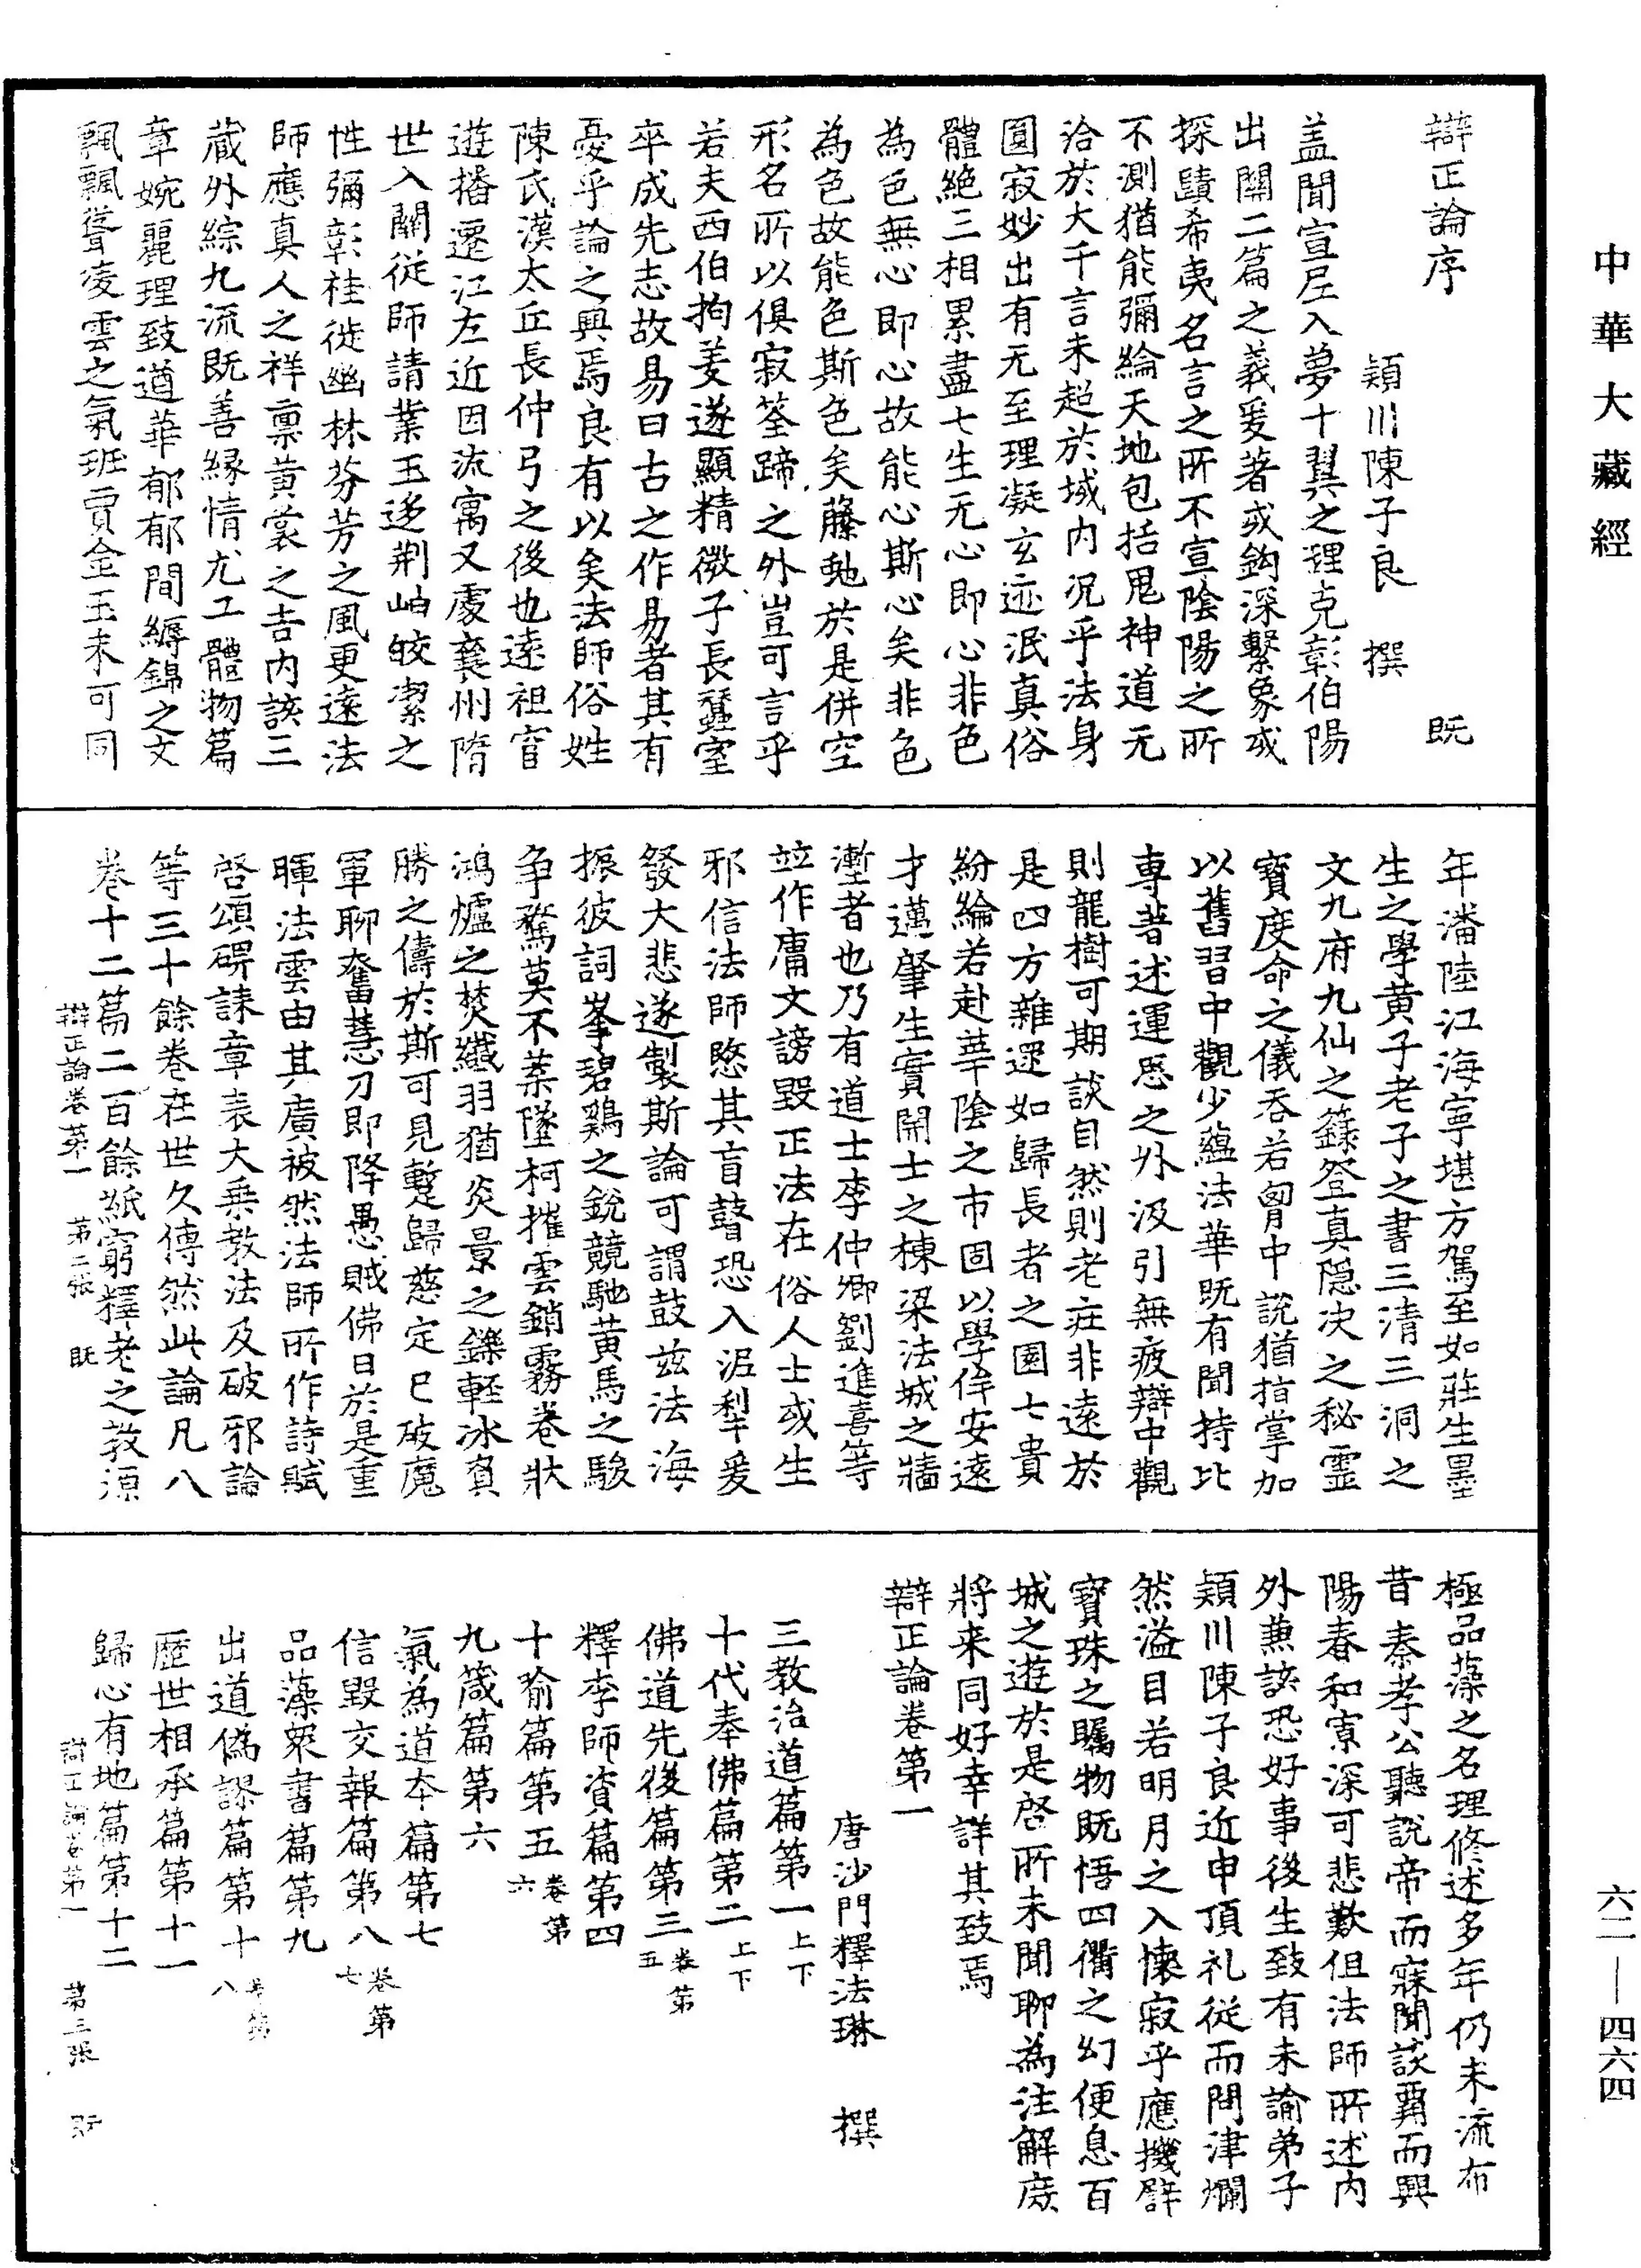 中華大藏經
六二—四六四
辯正論序　既
潁川陳子良　撰
盖聞宣尼入夢十翼之理克彰伯陽
出關二篇之義爰著或鈎深繫象或
探賾希夷名言之所不宣陰陽之所
不測猶能彌綸天地包括鬼神道无
洽於大千言未超於域内况乎法身
圓寂妙出有无至理凝玄迹泯真俗
體絶三相累盡七生无心即心非色
為色無心即心故能心斯心矣非色
為色故能色斯色矣藤虵於是併空
形名所以俱寂筌蹄之外豈可言乎
若夫西伯拘羑遂顯精微子長蠶室
卒成先志故易曰古之作易者其有
憂乎論之興焉良有以矣法師俗姓
陳氏漢太丘長仲弓之後也遠祖宦
遊播遷江左近因流寓又處襄州隋
世入關從師請業玉迻荆岫皎潔之
性彌彰桂徙幽林芬芳之風更遠法
師應真人之祥禀黄裳之吉内該三
蔵外綜九流既善緣情尤工體物篇
章婉麗理致遒華郁郁間縟錦之文
飄飄聳凌雲之氣班賈金玉未可同
年潘陸江海寧堪方駕至如莊生墨
生之學黄子老子之書三清三洞之
文九府九仙之籙登真隱決之秘靈
寶度命之儀吞若胷中說猶指掌加
以舊習中觀少蘊法華既有聞持比
專著述運思之外汲引無疲辯中觀
則龍樹可期談自然則老莊非遠於
是四方雜遝如歸長者之園七貴
紛綸若赴華陰之市固以學侔安遠
才邁肇生實開士之棟梁法城之牆
壍者也乃有道士李仲卿劉進喜等
竝作庸文謗毀正法在俗人士或生
邪信法師愍其盲瞽恐入泥犂爰
發大悲遂製斯論可謂鼓兹法海
振彼詞峯碧鷄之銳競馳黄馬之駿
争騖莫不葉墜柯摧雲銷霧卷狀
鴻爐之焚纖羽猶炎景之鑠輕冰負
勝之儔於斯可見蹔歸慈定已破魔
軍聊奮慧刀即降愚賊佛日於是重
暉法雲由其廣被然法師所作詩賦
啓頌碑誄章表大乘教法及破邪論
等三十餘卷在世久傳然此論凡八
卷十二篇二百餘紙窮釋老之教源
辯正論卷第一　第二張　既
極品藻之名理修述多年仍未流布
昔秦孝公聽說帝而寐聞談覇而興
陽春和寡深可悲歎但法師所述内
外兼該恐好事後生致有未諭弟子
潁川陳子良近申頂礼從而問津爛
然溢目若明月之入懐寂乎應機譬
寶珠之矚物既悟四衢之幻便息百
城之遊於是啓所未聞聊為注解庶
將来同好幸詳其致焉
辯正論卷第一
唐沙門釋法琳　撰
三教治道篇第一上下
十代奉佛篇第二上下
佛道先後篇第三卷第五
釋李師資篇第四
十喻篇第五卷第六
九箴篇第六
氣為道本篇第七
信毀交報篇第八卷第七
品藻衆書篇第九
出道偽謬篇第十卷第八
歷世相承篇第十一
歸心有地篇第十二
辯正論卷第一　第三張　既